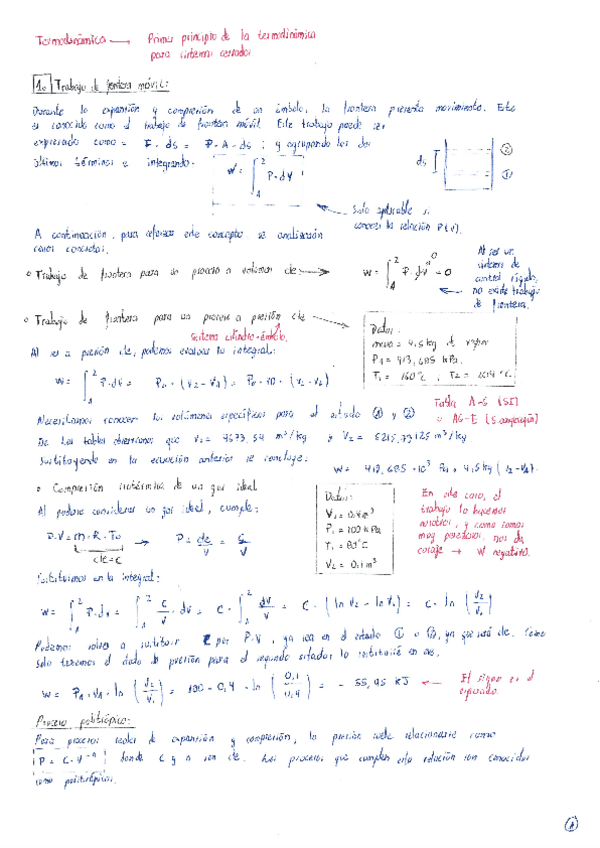 Termodinámica → Primer principio de la termodinámica
para sistemas cerrados
1. Trabajo de frontera móvil:
Durante la expansión y compresión de un émbolo, la frontera presenta movimiento. Este
es conocido como el trabajo de frontera móvil. Este trabajo puede ser
expresado como = F · ds = P · A · ds ; y agrupando los dos
últimos términos e integrando.
W = ∫₁² P·dV
ds
②
①
Solo aplicable si
conoces la relación P(V).
A continuación, para reforzar este concepto se analizarán
casos concretos.
○ Trabajo de frontera para un proceso a volumen cte →
W = ∫₁² P·dV = 0
Al ser un
sistema de
control rígido,
no existe trabajo
de frontera.
○ Trabajo de frontera para un proceso a presión cte
sistema cilindro-émbolo.
Datos:
Al ser a presión cte, podemos evaluar la integral:
W = ∫₁² P·dV = P₀ · (V₂ - V₁) = P₀ · m · (v₂ - v₁)
Tabla A-6 (SI)
Necesitamos conocer los volúmenes específicos para el estado ① y ②
De las tablas obtenemos que
Sustituyendo en la ecuación anterior se concluye:
○ Compresión isotérmica de un gas ideal
Al poderse considerar un gas ideal, cumple:
P·V = m·R·T₀ → P = cte/V = C/V
cte = C
Datos:
P₁ = 100 kPa
T₁ = 80°C
V₂ = 0.1 m³
En este caso, el
trabajo lo hacemos
nosotros, y como somos
muy perezosos, nos da
coraje → W negativo.
Sustituimos en la integral:
W = ∫₁² P·dV = ∫₁² C/V · dV = C · ∫₁² dV/V = C · (ln V₂ - ln V₁) = C · ln (V₂/V₁)
Podemos volver a sustituir C por P·V, ya sea en el estado ① o ②, ya que será cte. Como
solo tenemos el dato de presión para el
W = P₁·V₁·ln (V₂/V₁) = 100 · 0,4 · ln (0,1/0,4) = - 55,45 KJ ←
El signo es el
esperado.
Proceso politrópico:
Para procesos reales de expansión y compresión, la presión suele relacionarse como
P = C·V⁻ⁿ donde C y n son cte. Los procesos que cumplen esta relación son conocidos
como politrópicos.
①